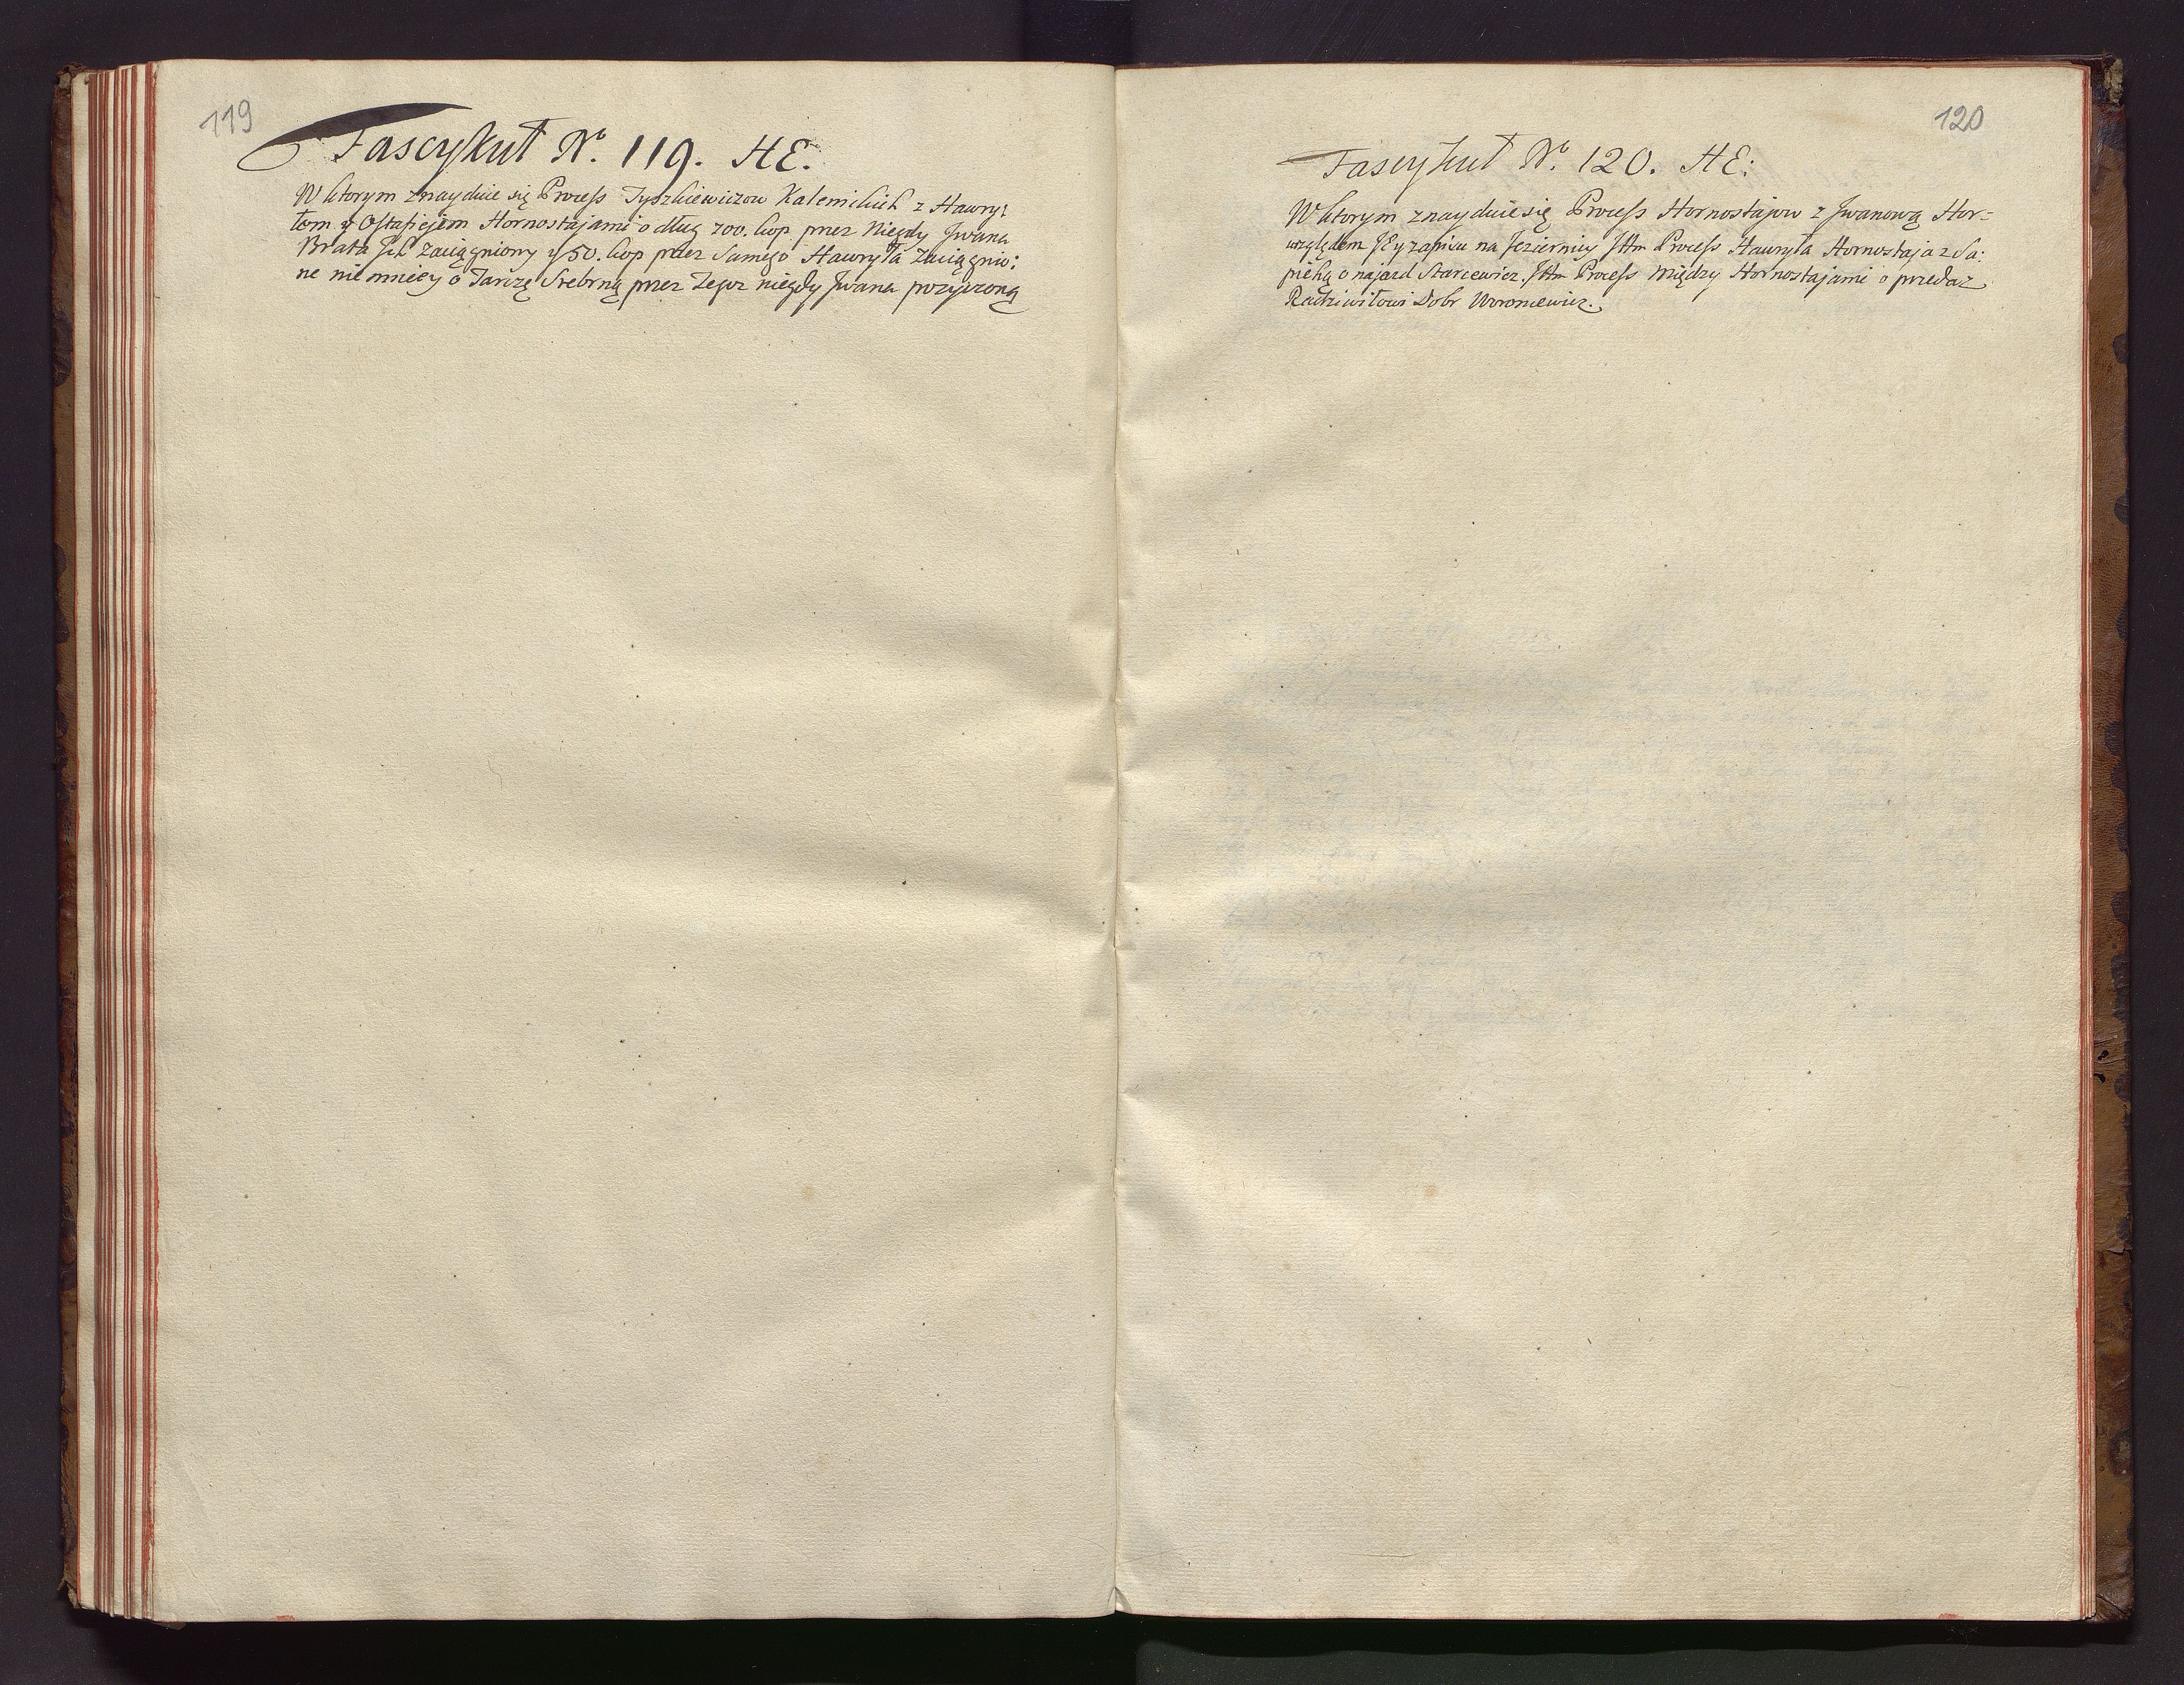 119
Fascykuł No. 119. HE.
W ktorym znayduie się Process Tyszkiewiczow Kalenickich z Hawry:
łem y Ostafiejem Hornostajami o dług 700. kop przez Niegdy Jwana
Brata Jch zaciągniony y 50. kop przez Samego Hawryła zaciągnio:
ne niemniey o Tarczę Srebrną przez Tegoz niegdy Jwana pozyczoną
120
Fascykuł No. 120. HE:
W ktorym znayduie się Process Hornostajow z Jwanową Hor-
względem Jey zapisu na Jeziernicy Jttm Process Hawryła Hornostaja z Sa:
piehą o najazd Starcewicz. Jttm Process między Hornostajami o przedaż
Radziwiłowi Dobr Woroniewicz.